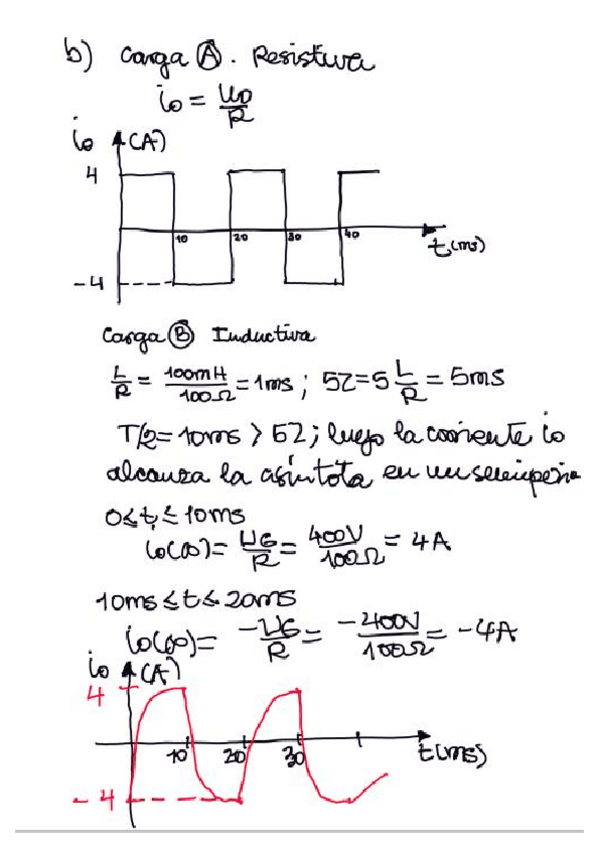 b) Carga Ⓐ. Resistiva
io = uo/R
io (A)
4
10 20 30 40
t(ms)
-4
Carga Ⓑ Inductiva
L/R = 100mH/100Ω = 1ms ; 5Z = 5 L/R = 5ms
T/2 = 10ms > 5Z ; luego la corriente io
alcanza la asíntota en un semiperio
0 ≤ t ≤ 10ms
io(∞) = UG/R = 400V/100Ω = 4A
10ms ≤ t ≤ 20ms
io(∞) = -UG/R = -400V/100Ω = -4A
io (A)
4
10 20 30
t(ms)
-4